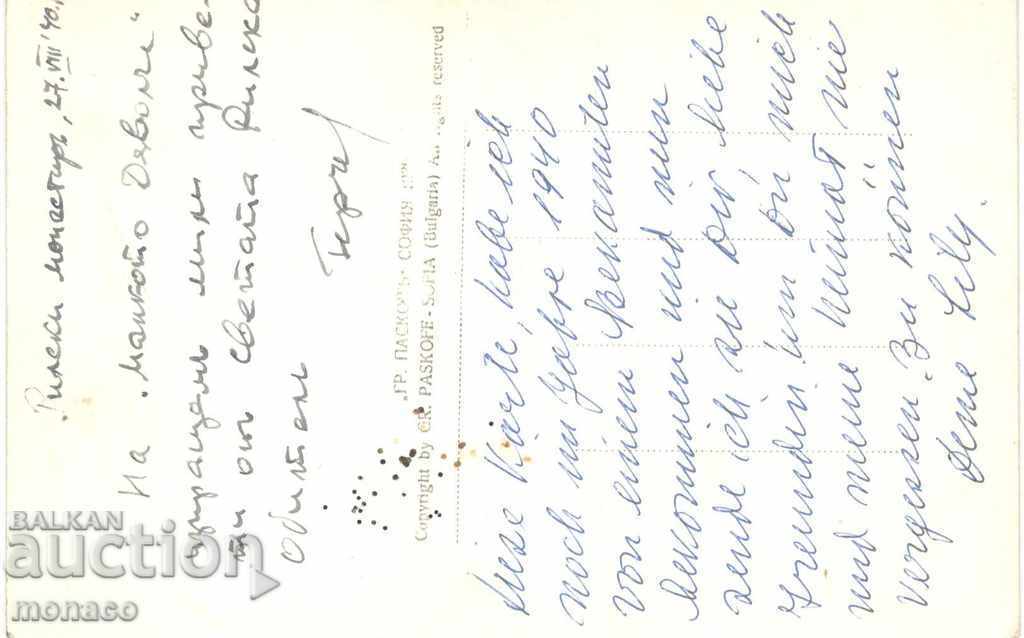 Рилски монастиръ, 27.VIII '40.
На "малкото Дяволче"
изпращамъ мили приве-
ти отъ светата Рилска
обителъ

"ГР. ПАСКОВЪ" СОФИЯ
Copyright by GR. PASKOFF - SOFIA (Bulgaria) All rights reserved
Diese Karte, habe ich
noch im Jahre 1940
von einem Bekannten
bekommen und nun
sende ich sie dir, liebe
Freundin! im
und meine Heimat nie
vergessen. Zu
Deine Lily.
BALKAN
auction
monaco